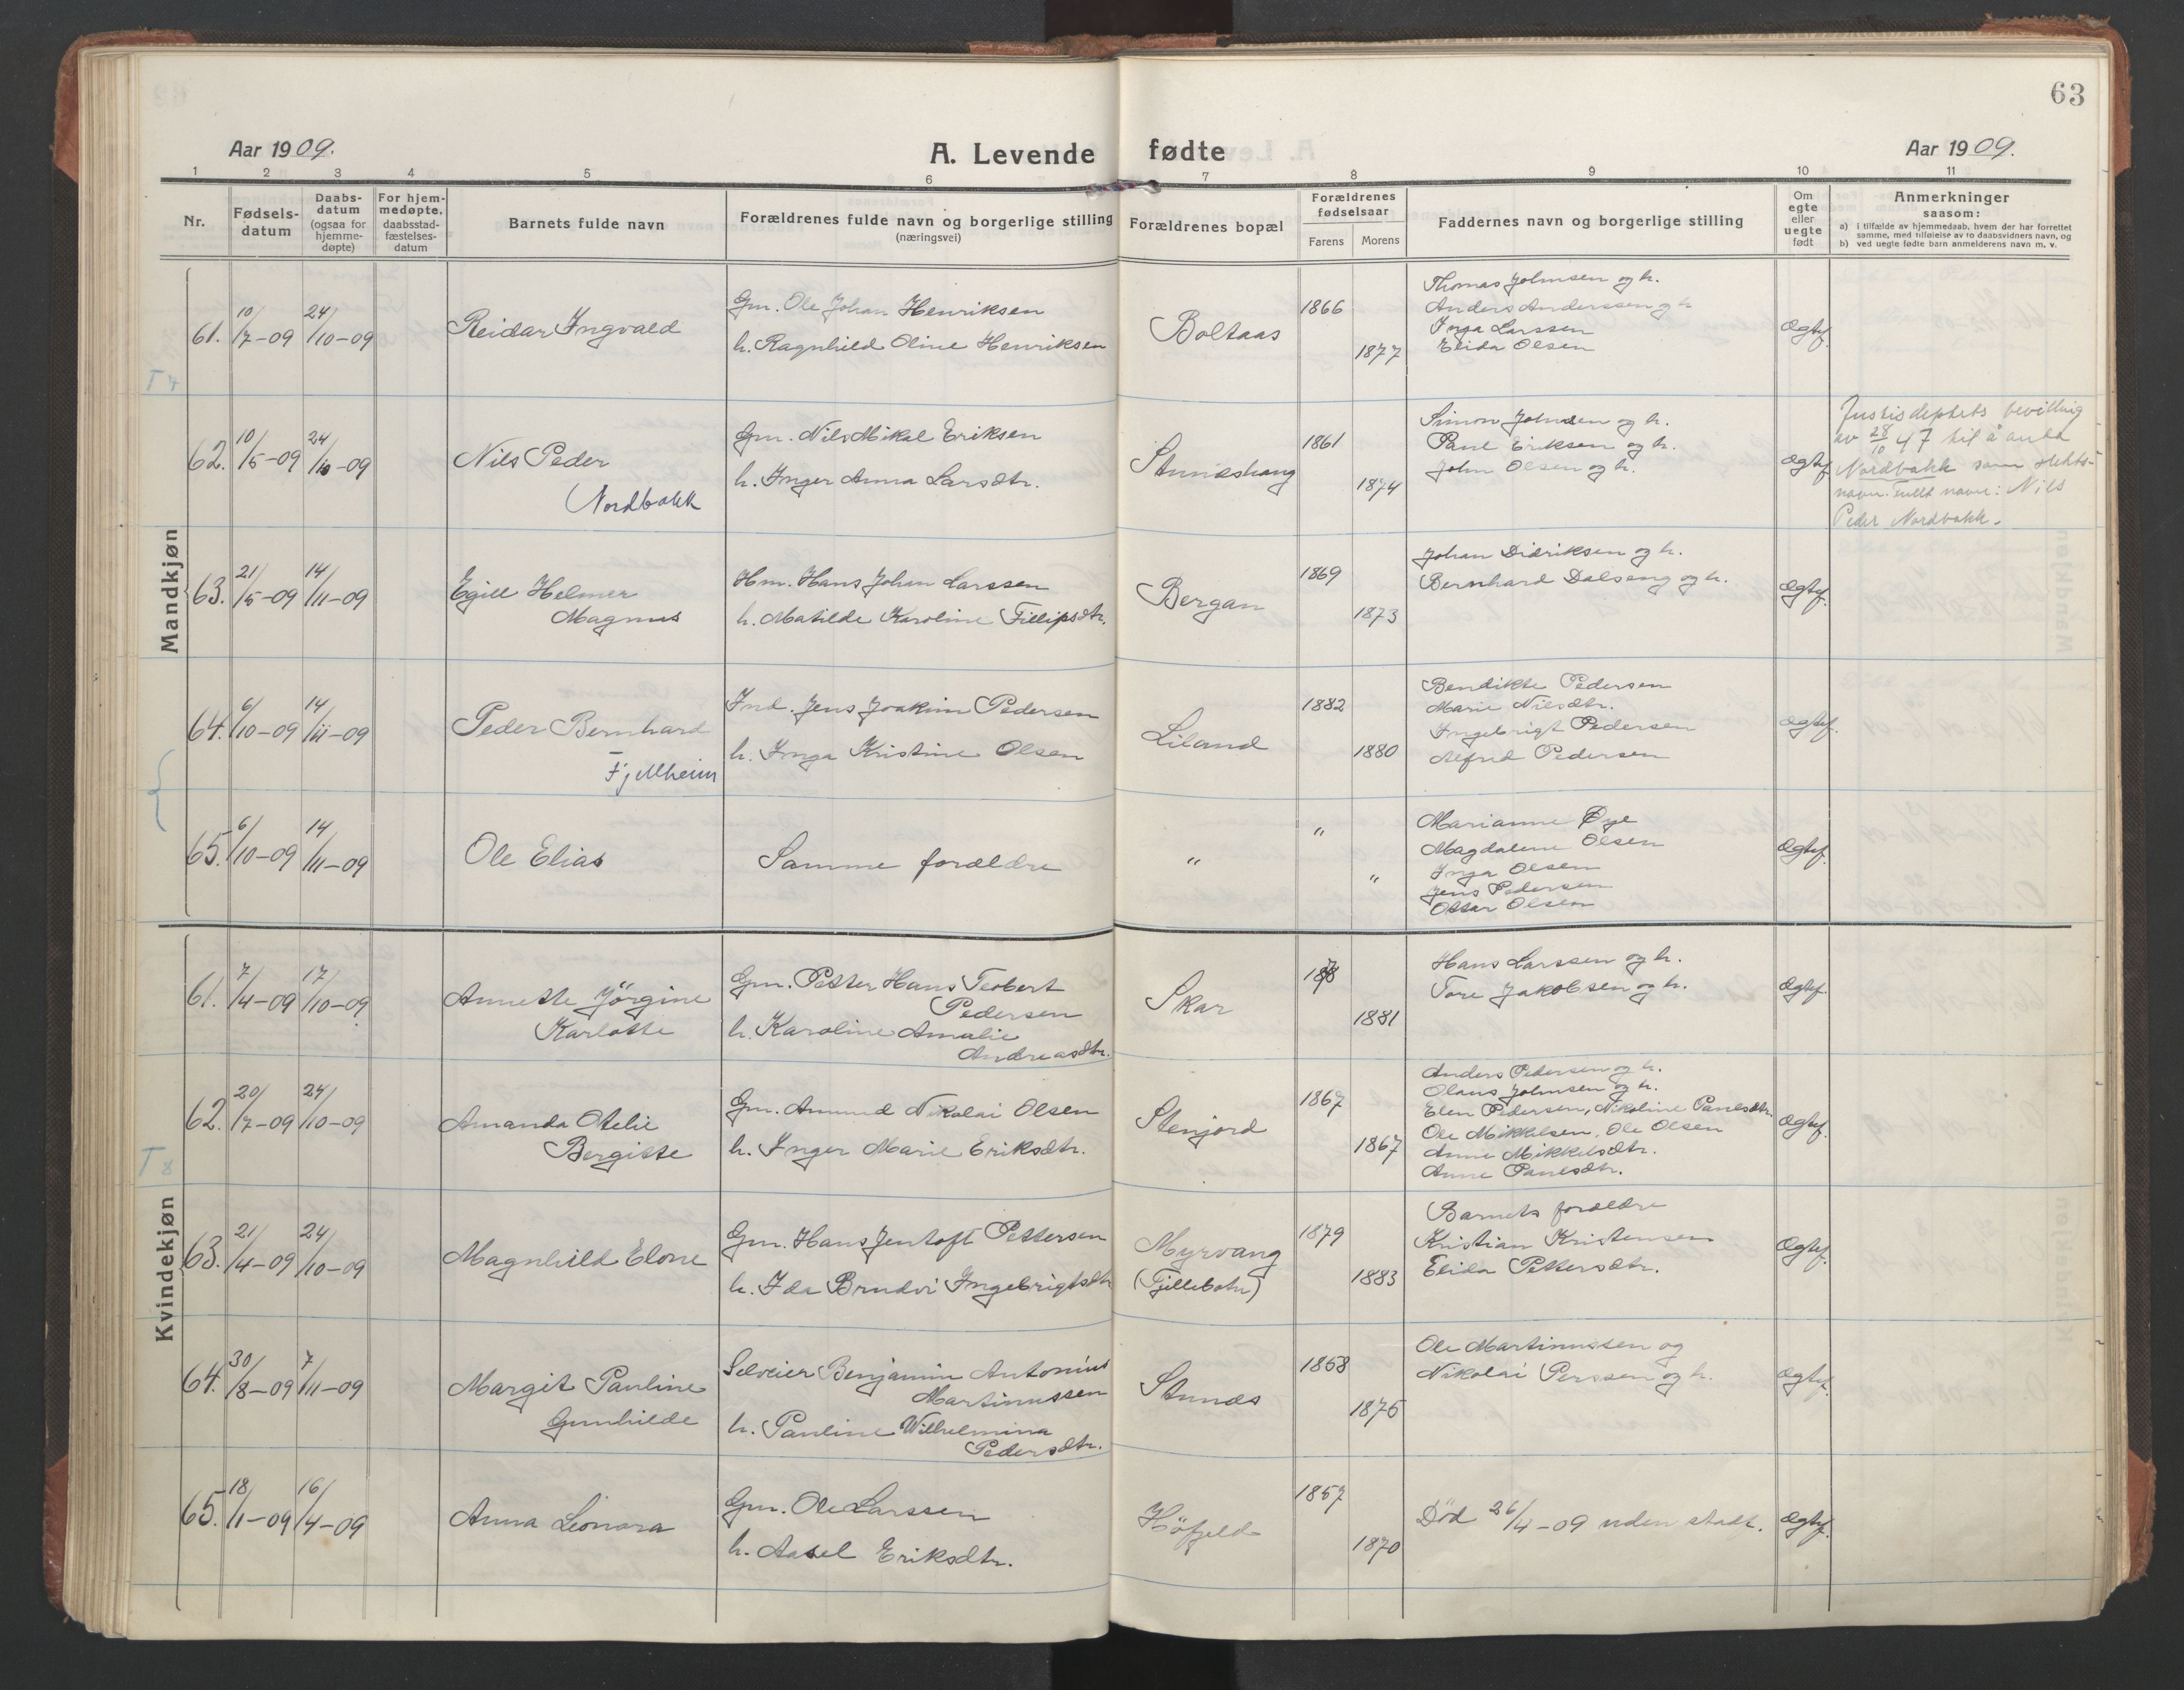 63
Aar 1909.
A. Levende fødte
Aar 1909.
1 2 3 4 5 6 7 8 9 10 11
Nr.
Fødsels-
datum
Daabs-
datum
(ogsaa for
hjemme-
døpte)
For hjem-
medøpte.
daabsstad-
fæstelses-
datum
Barnets fulde navn
Forældrenes fulde navn og borgerlige stilling
(næringsvei)
Forældrenes bopæl
Forældrenes
fødselsaar
Farens Morens
Faddernes navn og borgerlige stilling
Om
egte
eller
uegte
født
Anmerkninger
saasom:
a) i tilfælde av hjemmedaab, hvem der har forrettet
samme, med tilføielse av to daabsvidners navn, og
b) ved uegte fødte barn anmelderens navn m. v.
Mandkjøn
61. 10/7-09 24/10-09 Reidar Ingvald
Gm. Ole Johan Henriksen
h. Ragnhild Oline Henriksen
Boltaas
1866
1877
Thomas Johnsen og h.
Anders Anderssen og h
Inga Larssen
Elida Olsen
Ægtef.
T 7
62. 10/5-09 24/10-09 Nils Peder
Nordbakk
Gm. Nils Mikal Eriksen
h. Inger Anna Larsdtr.
Strandshaug
1861
1874
Simon Johnsen og h.
Paul Eriksen og h.
John Olsen og h.
Ægtef
Justisdeptets bevilling
av 28/10 47 til å anta
Nordbakk som slekts-
navn. Fullt navn: Nils
Peder Nordbakk.
63. 21/5-09 14/11-09 Egill Helmer
Magnus
Hm. Hans Johan Larssen
h. Matilde Karoline Fillipsdtr.
Bergan
1869
1873
Johan Didriksen og h.
Bernhard Dalseng og h.
Ægtef.
64. 6/10-09 14/11-09 Peder Bernhard
Fjellheim
Ind. Jens Joakim Pedersen
h. Inga Kristine Olsen
Liland
1882
1880
Bendikte Pedersen
Marie Nilsdtr.
Ingebrigt Pedersen
Alfred Pedersen
Ægtef.
65. 6/10-09 14/11-09 Ole Elias
Samme forældre
" " "
Marianne Øye
Magdalene Olsen
Inga Olsen
Jens Pedersen
Ottar Olsen
Ægtef.
Kvindekjøn
61. 7/4-09 17/10-09 Annette Jörgine
Karlotte
Gm. Petter Hans Teobert
Pedersen
h. Karoline Amalie
Andreasdtr.
Skar
1881
Hans Larssen og h.
Tore Jakobsen og h.
Ægtef.
62. 20/7-09 24/10-09 Amanda Otelie
Bergitte
Gm. Amund Nikolai Olsen
h. Inger Marie Eriksdtr.
Stenjord
1867
1867
Anders Pedersen og h.
Olaus Johnsen og h.
Elen Pedersen, Nikoline Paulsdtr.
Ole Mikkelsen, Ole Olsen
Anne Mikkelsdtr.
Anne Paulsdtr.
Ægtef.
T 8
63. 21/4-09 24/10-09 Magnhild Elone
Gm. Hans Jentoft Pettersen
h. Ida Brudvi Ingebrigtsdtr
Myrvang
(Fjillbotn)
1879
1883
Barnets forældre
Kristian Kristensen
Elida Pettersdtr.
Ægtef.
64. 30/8-09 7/11-09 Margit Pauline
Gunhilde
Selveier Benjamin Antonius
Martinussen
h. Pauline Wilhelmina
Pedersdtr.
Strands
1868
1876
Ole Martinussen og
Nikolai Perssen og h.
Ægtef.
65. 18/1-09 16/4-09 Anna Leonora
Gm. Ole Larssen
h. Aasel Eriksdtr.
Höfjeld
1857
1870
Død 26/4-09 uden stadf.
Ægtef.